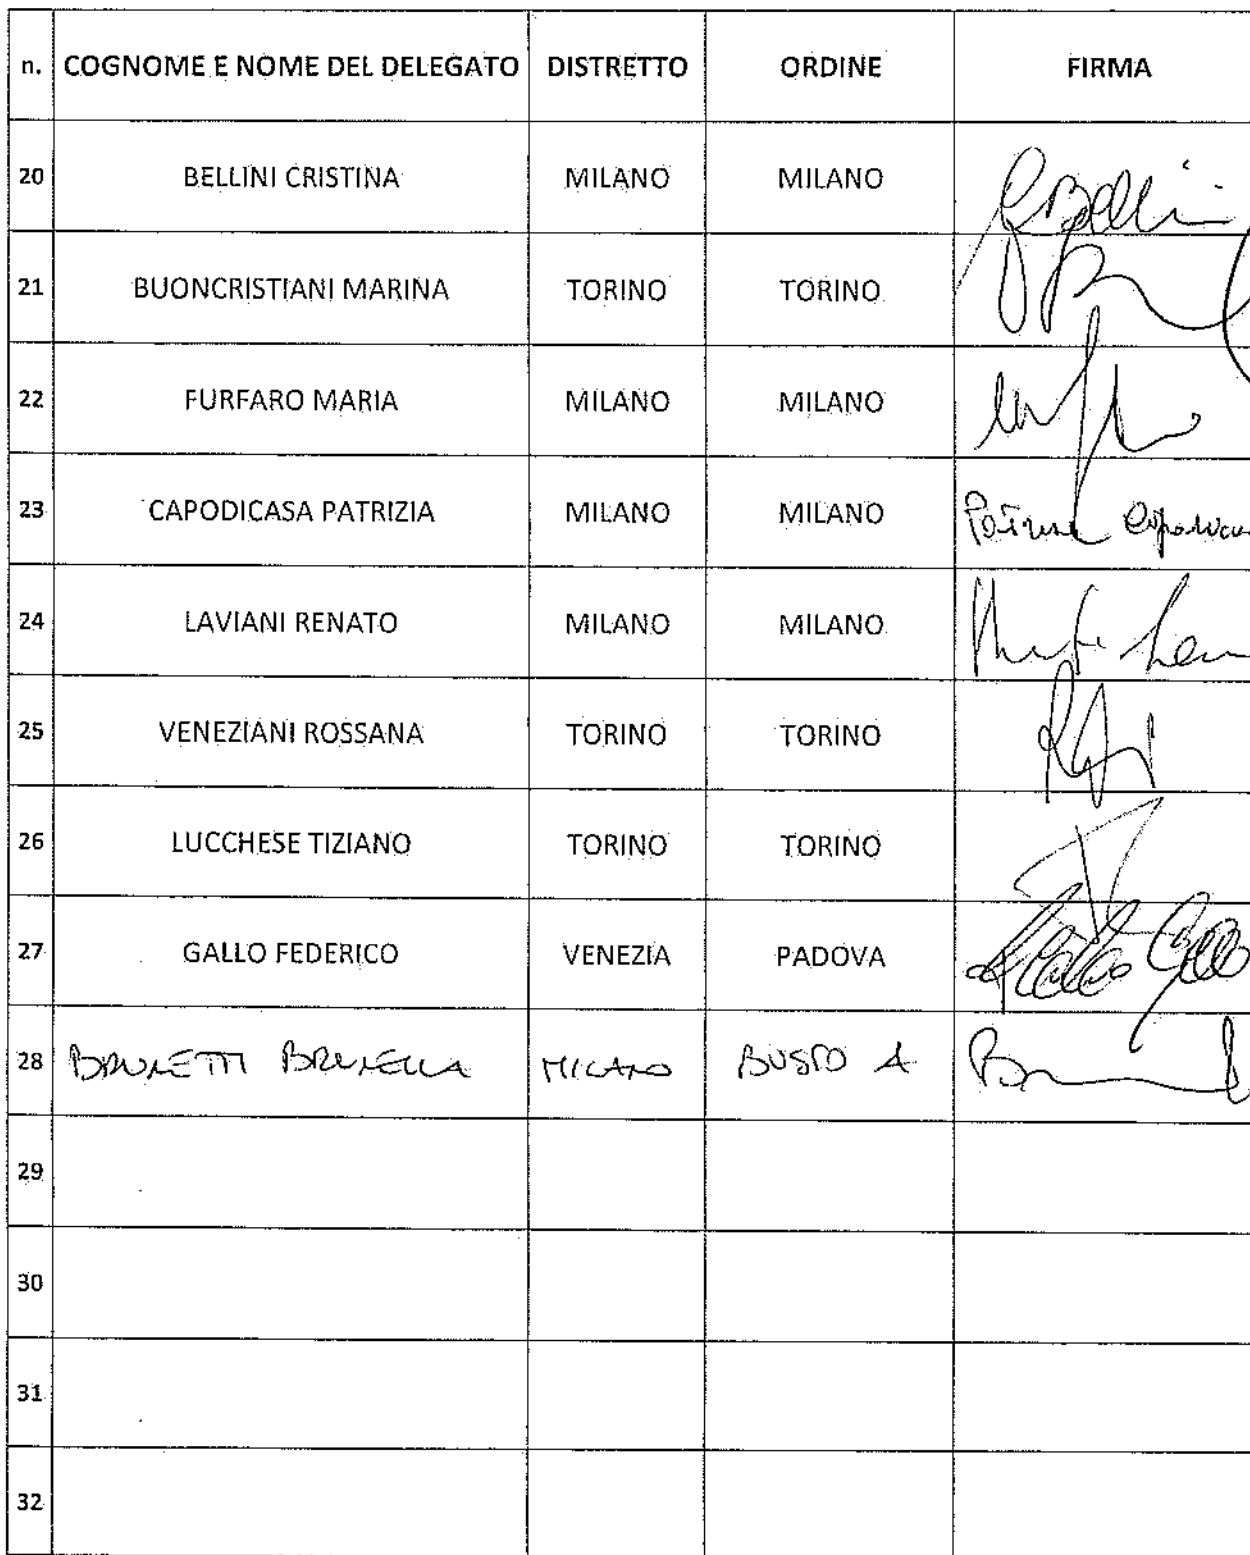 n. COGNOME E NOME DEL DELEGATO DISTRETTO ORDINE FIRMA
20 BELLINI CRISTINA MILANO MILANO Bellini
21 BUONCRISTIANI MARINA TORINO TORINO
22 FURFARO MARIA MILANO MILANO
23 CAPODICASA PATRIZIA MILANO MILANO
24 LAVIANI RENATO MILANO MILANO
25 VENEZIANI ROSSANA TORINO TORINO
26 LUCCHESE TIZIANO TORINO TORINO
27 GALLO FEDERICO VENEZIA PADOVA Gallo
28 BRUNETTI BRUNELLA MILANO BUSTO A
29
30
31
32